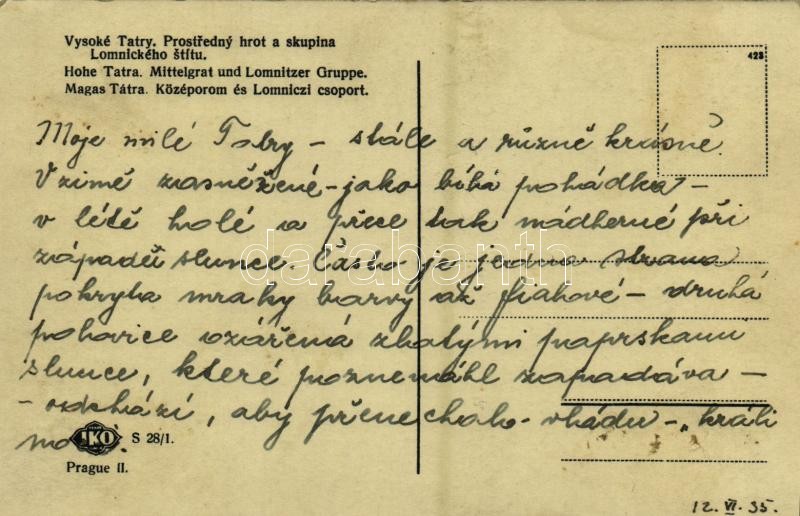 Vysoké Tatry. Prostředný hrot a skupina
Lomnického štítu.
Hohe Tatra. Mittelgrat und Lomnitzer Gruppe.
Magas Tátra. Középorom és Lomniczi csoport.
423
Moje milé Tatry – stále a různě krásné.
V zimě zasněžené – jako bílá pohádka –
v létě holé a přece tak nádherné při
západě slunce. Často je jedna strana
pokryta mraky barvy až fialové – druhá
polovice ozářená zlatými paprskami
slunce, které poznenáhl zapadává –
– odchází, aby přenechalo vládu – „králi
darabanth
IKO
S 28/1.
Prague II.
12. VI. 35.